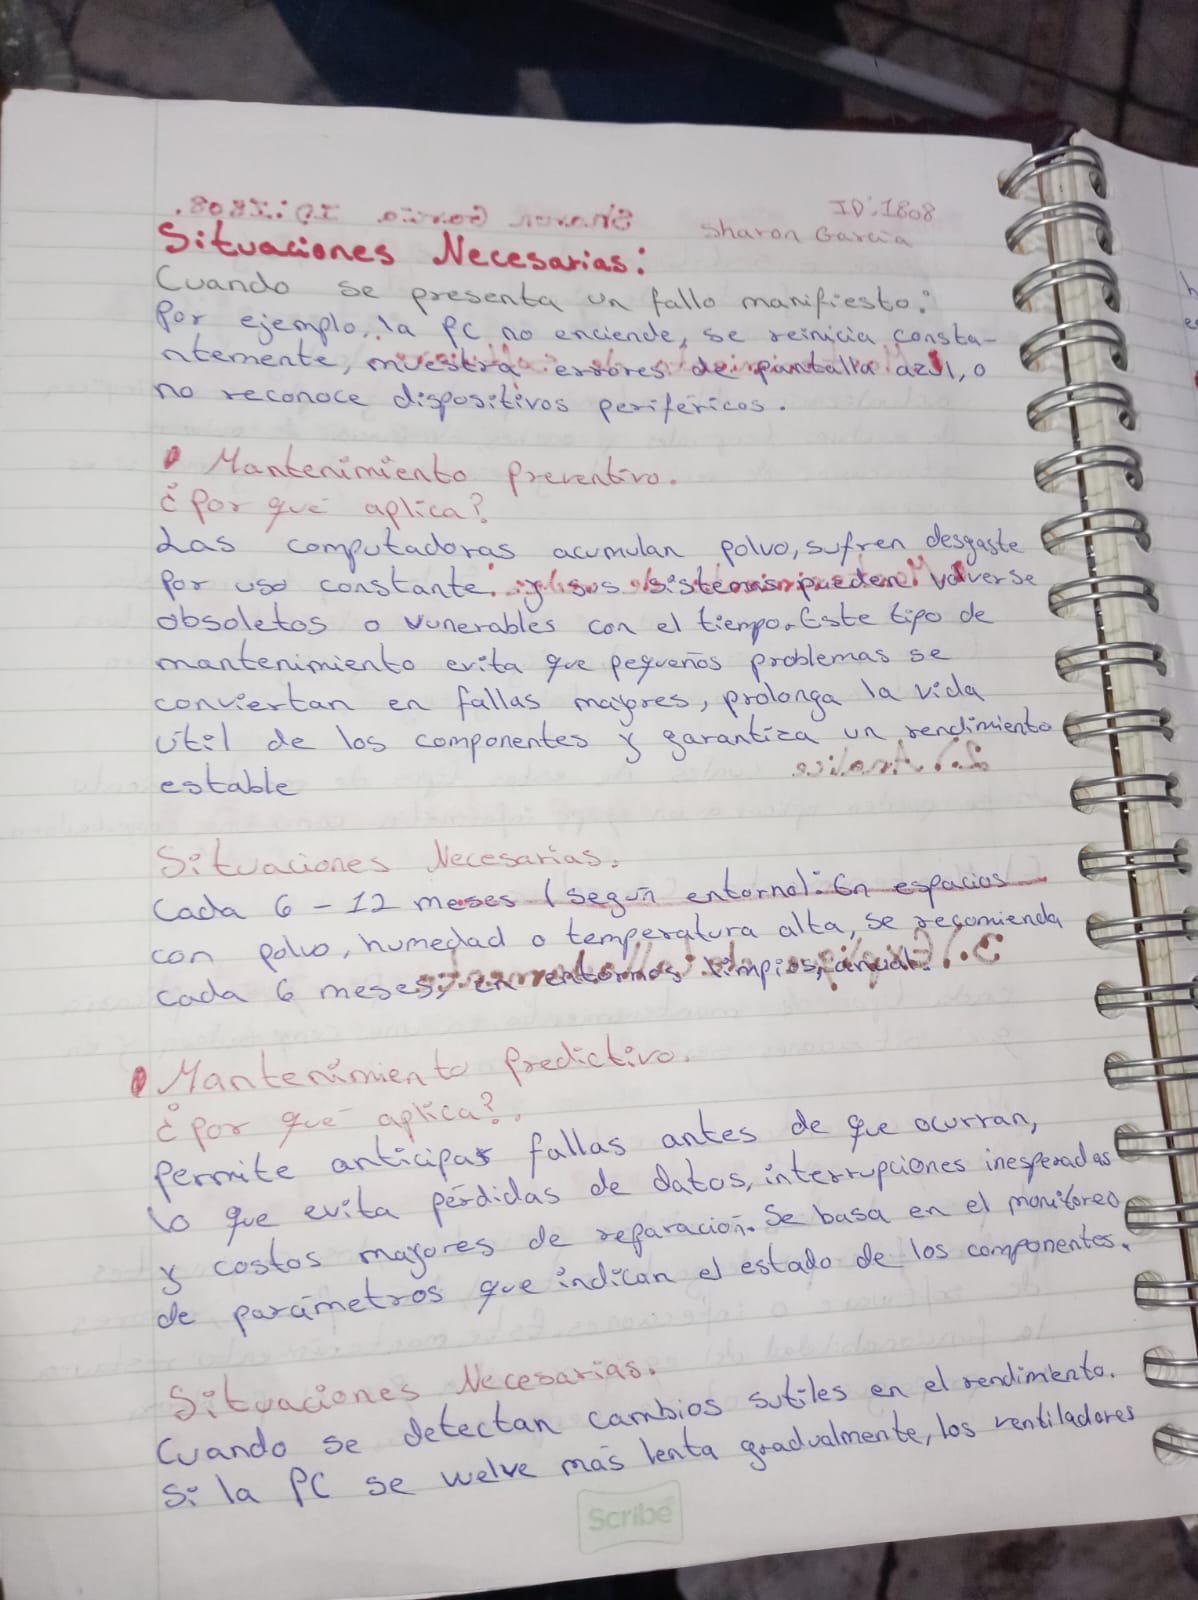 ID:1808
Sharon Garcia
Situaciones Necesarias:
Cuando se presenta un fallo manifiesto:
Por ejemplo, la PC no enciende, se reinicia consta-
ntemente, muestra errores de pantalla azul, o
no reconoce dispositivos periféricos.
• Mantenimiento Preventivo.
¿Por qué aplica?
Las computadoras acumulan polvo, sufren desgaste
por uso constante y sus sistemas pueden volverse
obsoletos o vunerables con el tiempo. Este tipo de
mantenimiento evita que pequeños problemas se
conviertan en fallas mayores, prolonga la vida
útil de los componentes y garantiza un rendimiento
estable
Situaciones Necesarias.
Cada 6 - 12 meses (según entorno): En espacios
con polvo, humedad o temperatura alta, se recomienda
cada 6 meses, en entornos limpios, anual.
• Mantenimiento Predictivo.
¿Por qué aplica?.
Permite anticipar fallas antes de que ocurran,
lo que evita pérdidas de datos, interrupciones inesperadas
y costos mayores de reparación. Se basa en el monitoreo
de parámetros que indican el estado de los componentes.
Situaciones Necesarias.
Cuando se detectan cambios sutiles en el rendimiento.
Si la PC se welve más lenta gradualmente, los ventiladores
Scribe